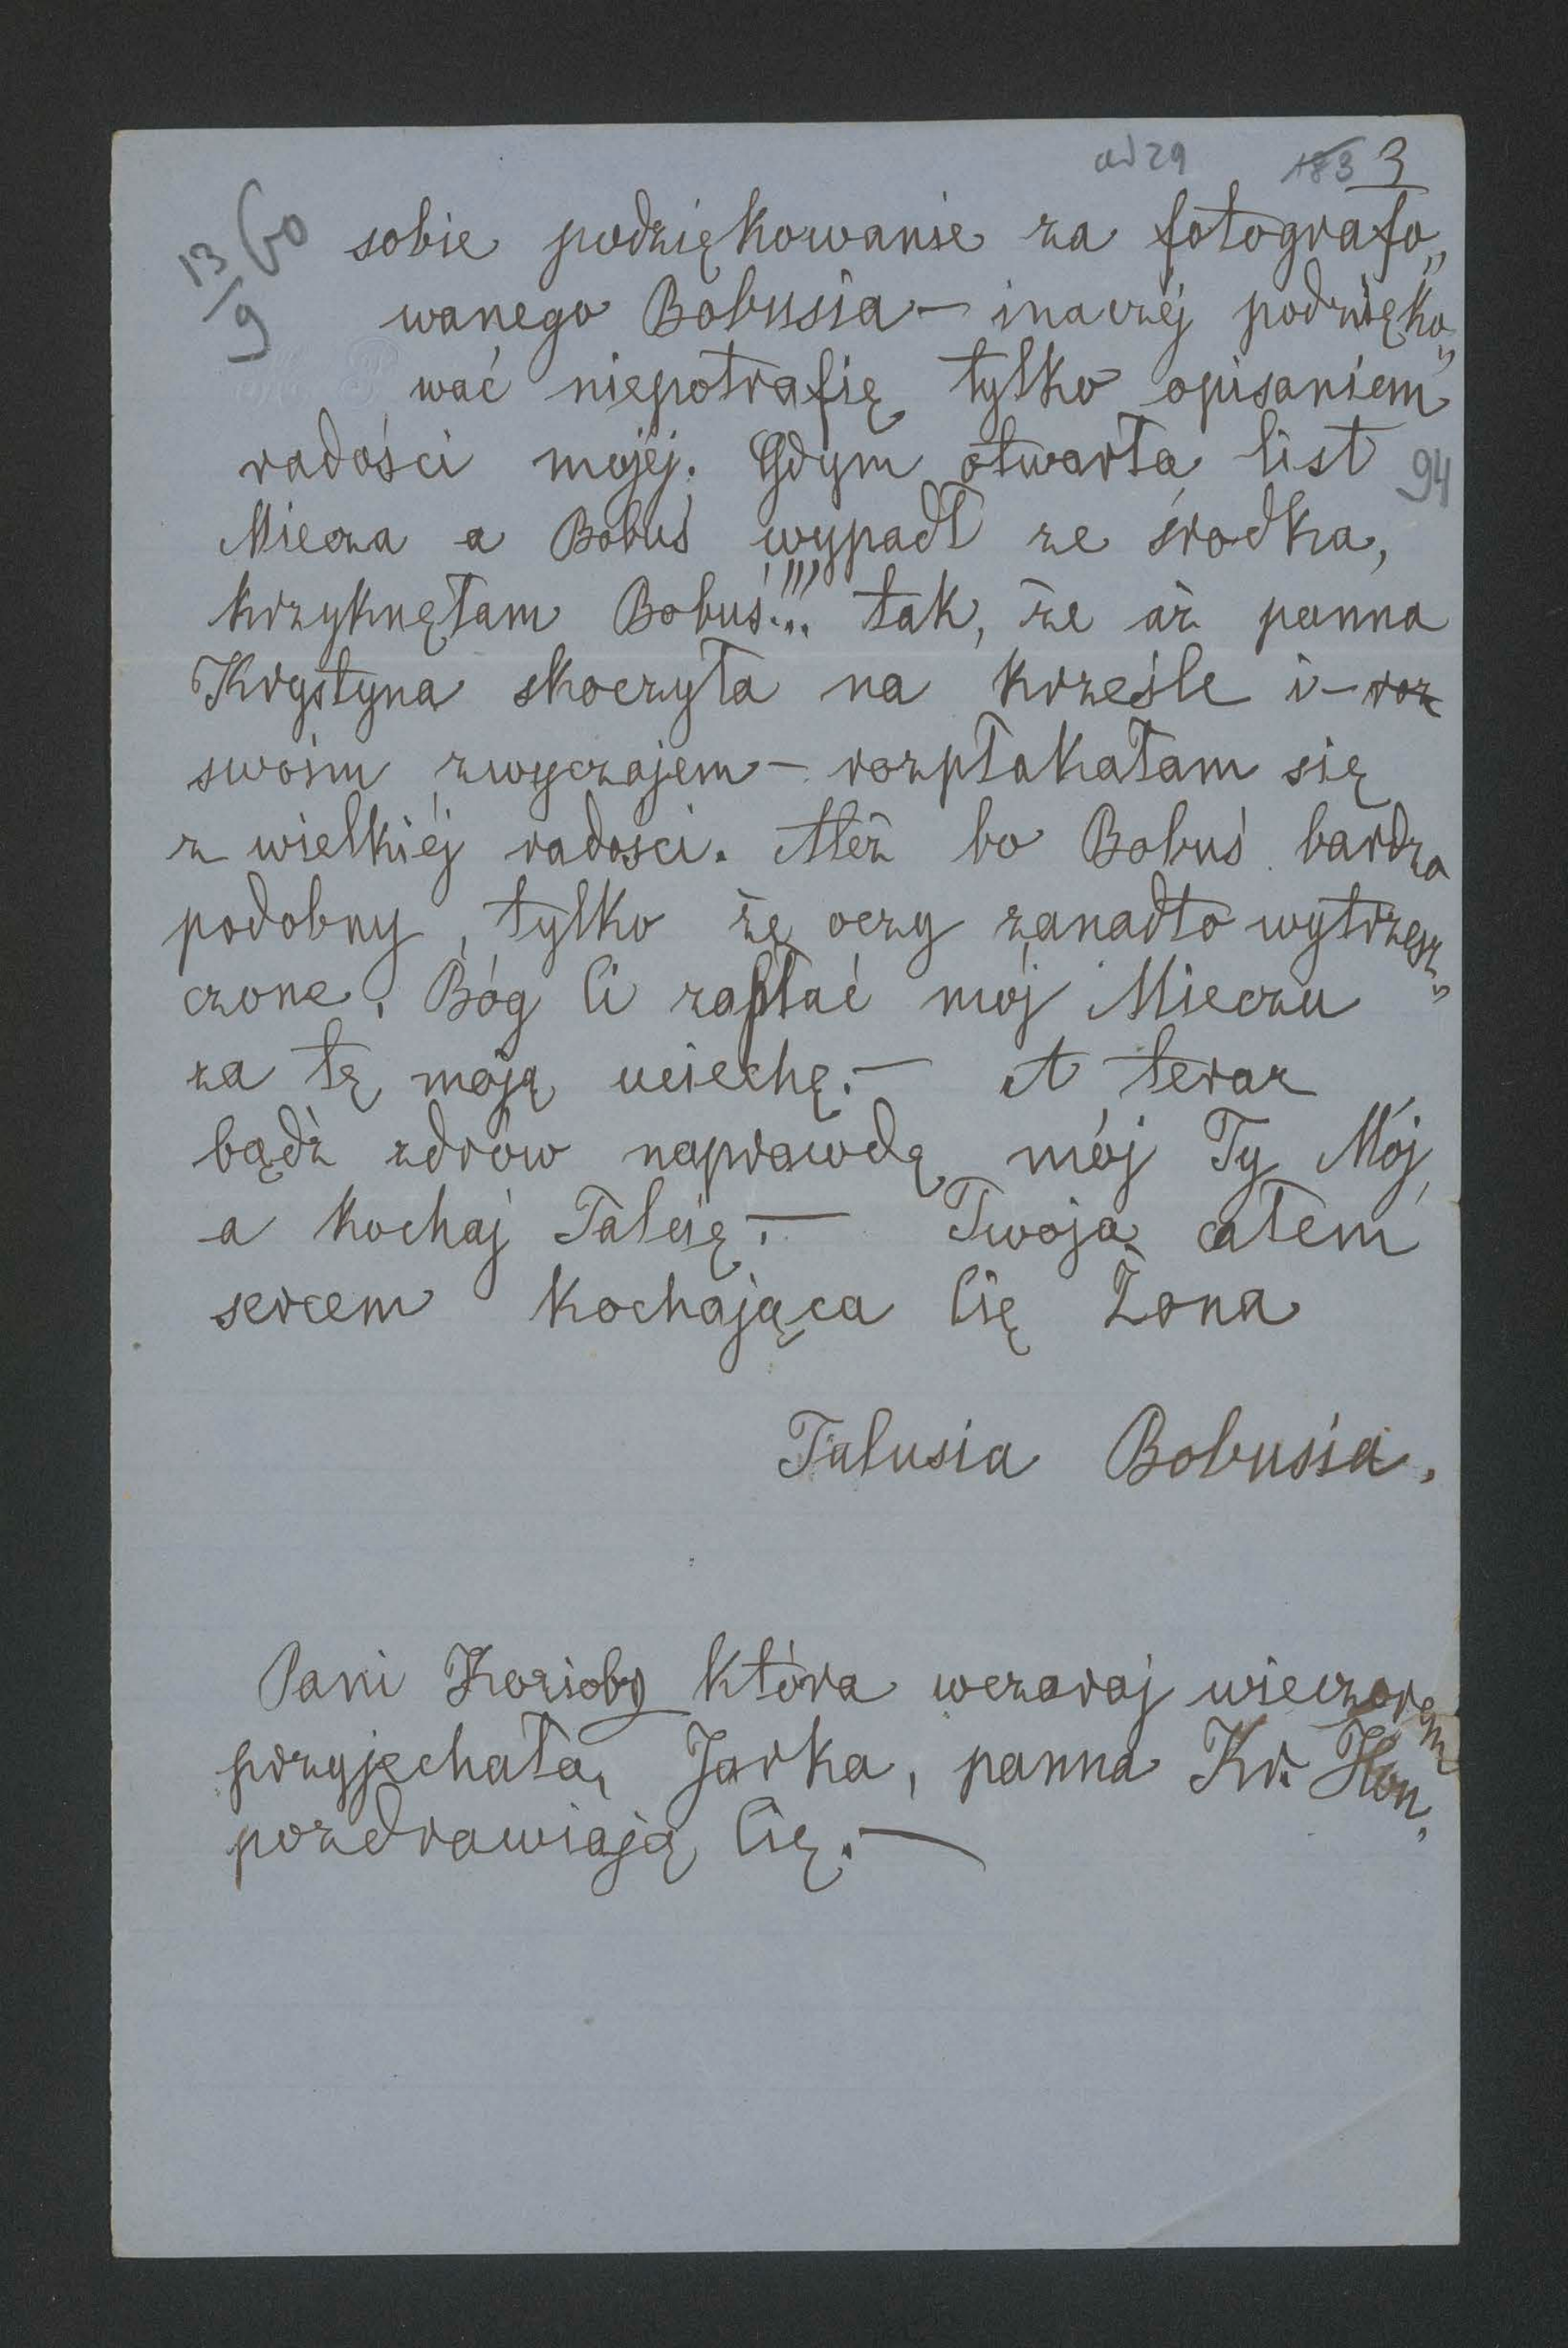 ad 29 183 3
13/9 60
sobie podziękowanie za fotografo„
wanego Bobusia – inaczéj podzięko„
wać niepotrafię tylko opisaniem
radości mojéj. Gdym otwarła list
94
Miecza a Bobuś wypadł ze środka,
krzyknęłam Bobuś!!! tak, że aż panna
Krystyna skoczyła na krześle i – roz
swoim zwyczajem – rozpłakałam się
z wielkiéj radości. Ależ bo Bobuś bardzo
podobny, tylko że oczy zanadto wytrzesz„
czone. Bóg Ci zapłać mój Mieczu
za tę moją uciechę. – A teraz
bądź zdrów naprawdę mój Ty Mój,
a kochaj Talcię. – Twoja całem
sercem kochająca Cię Żona
Talusia Bobusia.
Pani która wczoraj wieczorem
przyjechała, Jarka, panna Kr. Kon.
pozdrawiają Cię. –